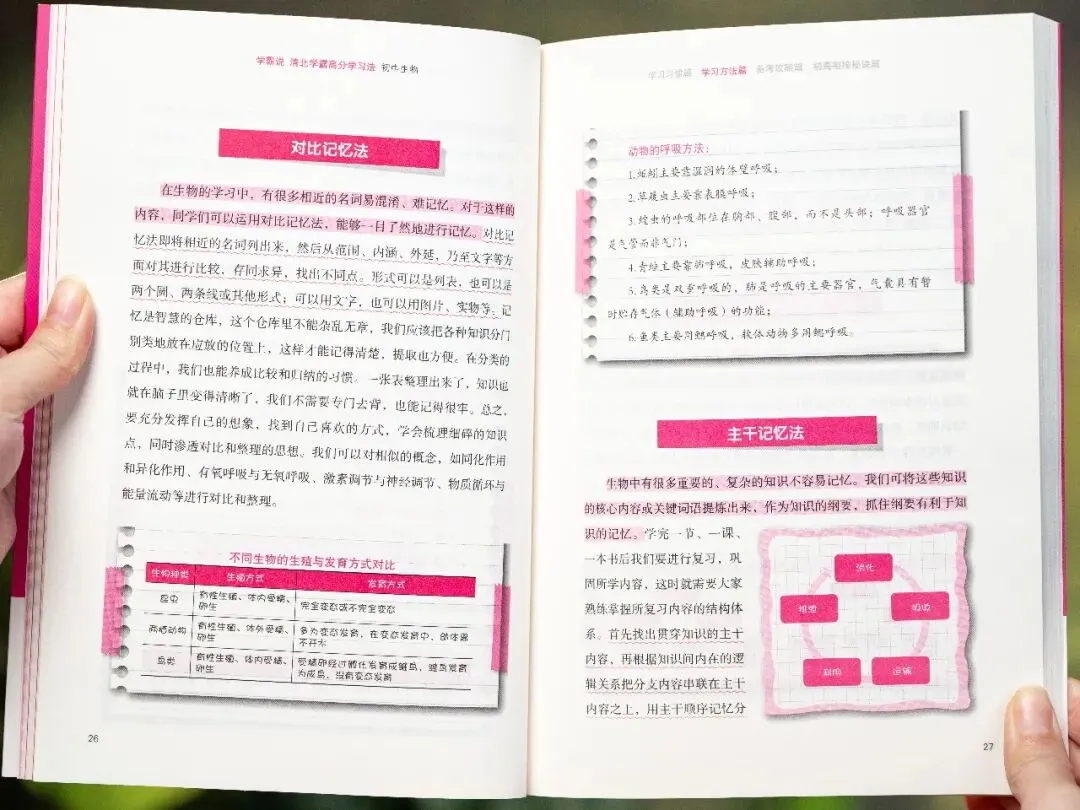 学霸说 清北学霸高分学习法 初中生物
对比记忆法
在生物的学习中，有很多相近的名词易混淆、难记忆。对于这样的
内容，同学们可以运用对比记忆法，能够一目了然地进行记忆。对比记
忆法即将相近的名词列出来，然后从范围、内涵、外延，乃至文字等方
面对其进行比较，存同求异，找出不同点。形式可以是列表，也可以是
两个圆、两条线或其他形式；可以用文字，也可以用图片、实物等。记
忆是智慧的仓库，这个仓库里不能杂乱无章，我们应该把各种知识分门
别类地放在应放的位置上，这样才能记得清楚，提取也方便。在分类的
过程中，我们也能养成比较和归纳的习惯。一张表整理出来了，知识也
就在脑子里变得清晰了，我们不需要专门去背，也能记得很牢。总之，
要充分发挥自己的想象，找到自己喜欢的方式，学会梳理细碎的知识
点，同时渗透对比和整理的思想。我们可以对相似的概念，如同化作用
和异化作用、有氧呼吸与无氧呼吸、激素调节与神经调节、物质循环与
能量流动等进行对比和整理。
不同生物的生殖与发育方式对比
生物种类 生物方式 发育方式
昆虫 有性生殖、体内受精、卵生 完全变态或不完全变态
两栖动物 有性生殖、体外受精、卵生 多为变态发育，在变态发育中，幼体离不开水
鸟类 有性生殖、体内受精、卵生 受精卵经过孵化发育成雏鸟，雏鸟发育为成鸟，没有变态发育
26
学习习惯篇 学习方法篇 备考攻略篇
动物的呼吸方法：
1.蚯蚓主要靠湿润的体壁呼吸；
2.草履虫主要靠表膜呼吸；
3.蝗虫的呼吸部位在胸部、腹部，而不是头部；呼吸器官
是气管而非气门；
4.青蛙主要靠肺呼吸，皮肤辅助呼吸；
5.鸟类是双重呼吸的，肺是呼吸的主要器官，气囊具有暂
时贮存气体（辅助呼吸）的功能；
6.鱼类主要用鳃呼吸，软体动物多用鳃呼吸。
主干记忆法
生物中有很多重要的、复杂的知识不容易记忆。我们可将这些知识
的核心内容或关键词语提炼出来，作为知识的纲要，抓住纲要有利于知
识的记忆。学完一节、一课、
一本书后我们要进行复习，巩
固所学内容，这时就需要大家
熟练掌握所复习内容的结构体
系。首先找出贯穿知识的主干
内容，再根据知识间内在的逻
辑关系把分支内容串联在主干
内容之上，用主干顺序记忆分
消化
吸收
运输
利用
27